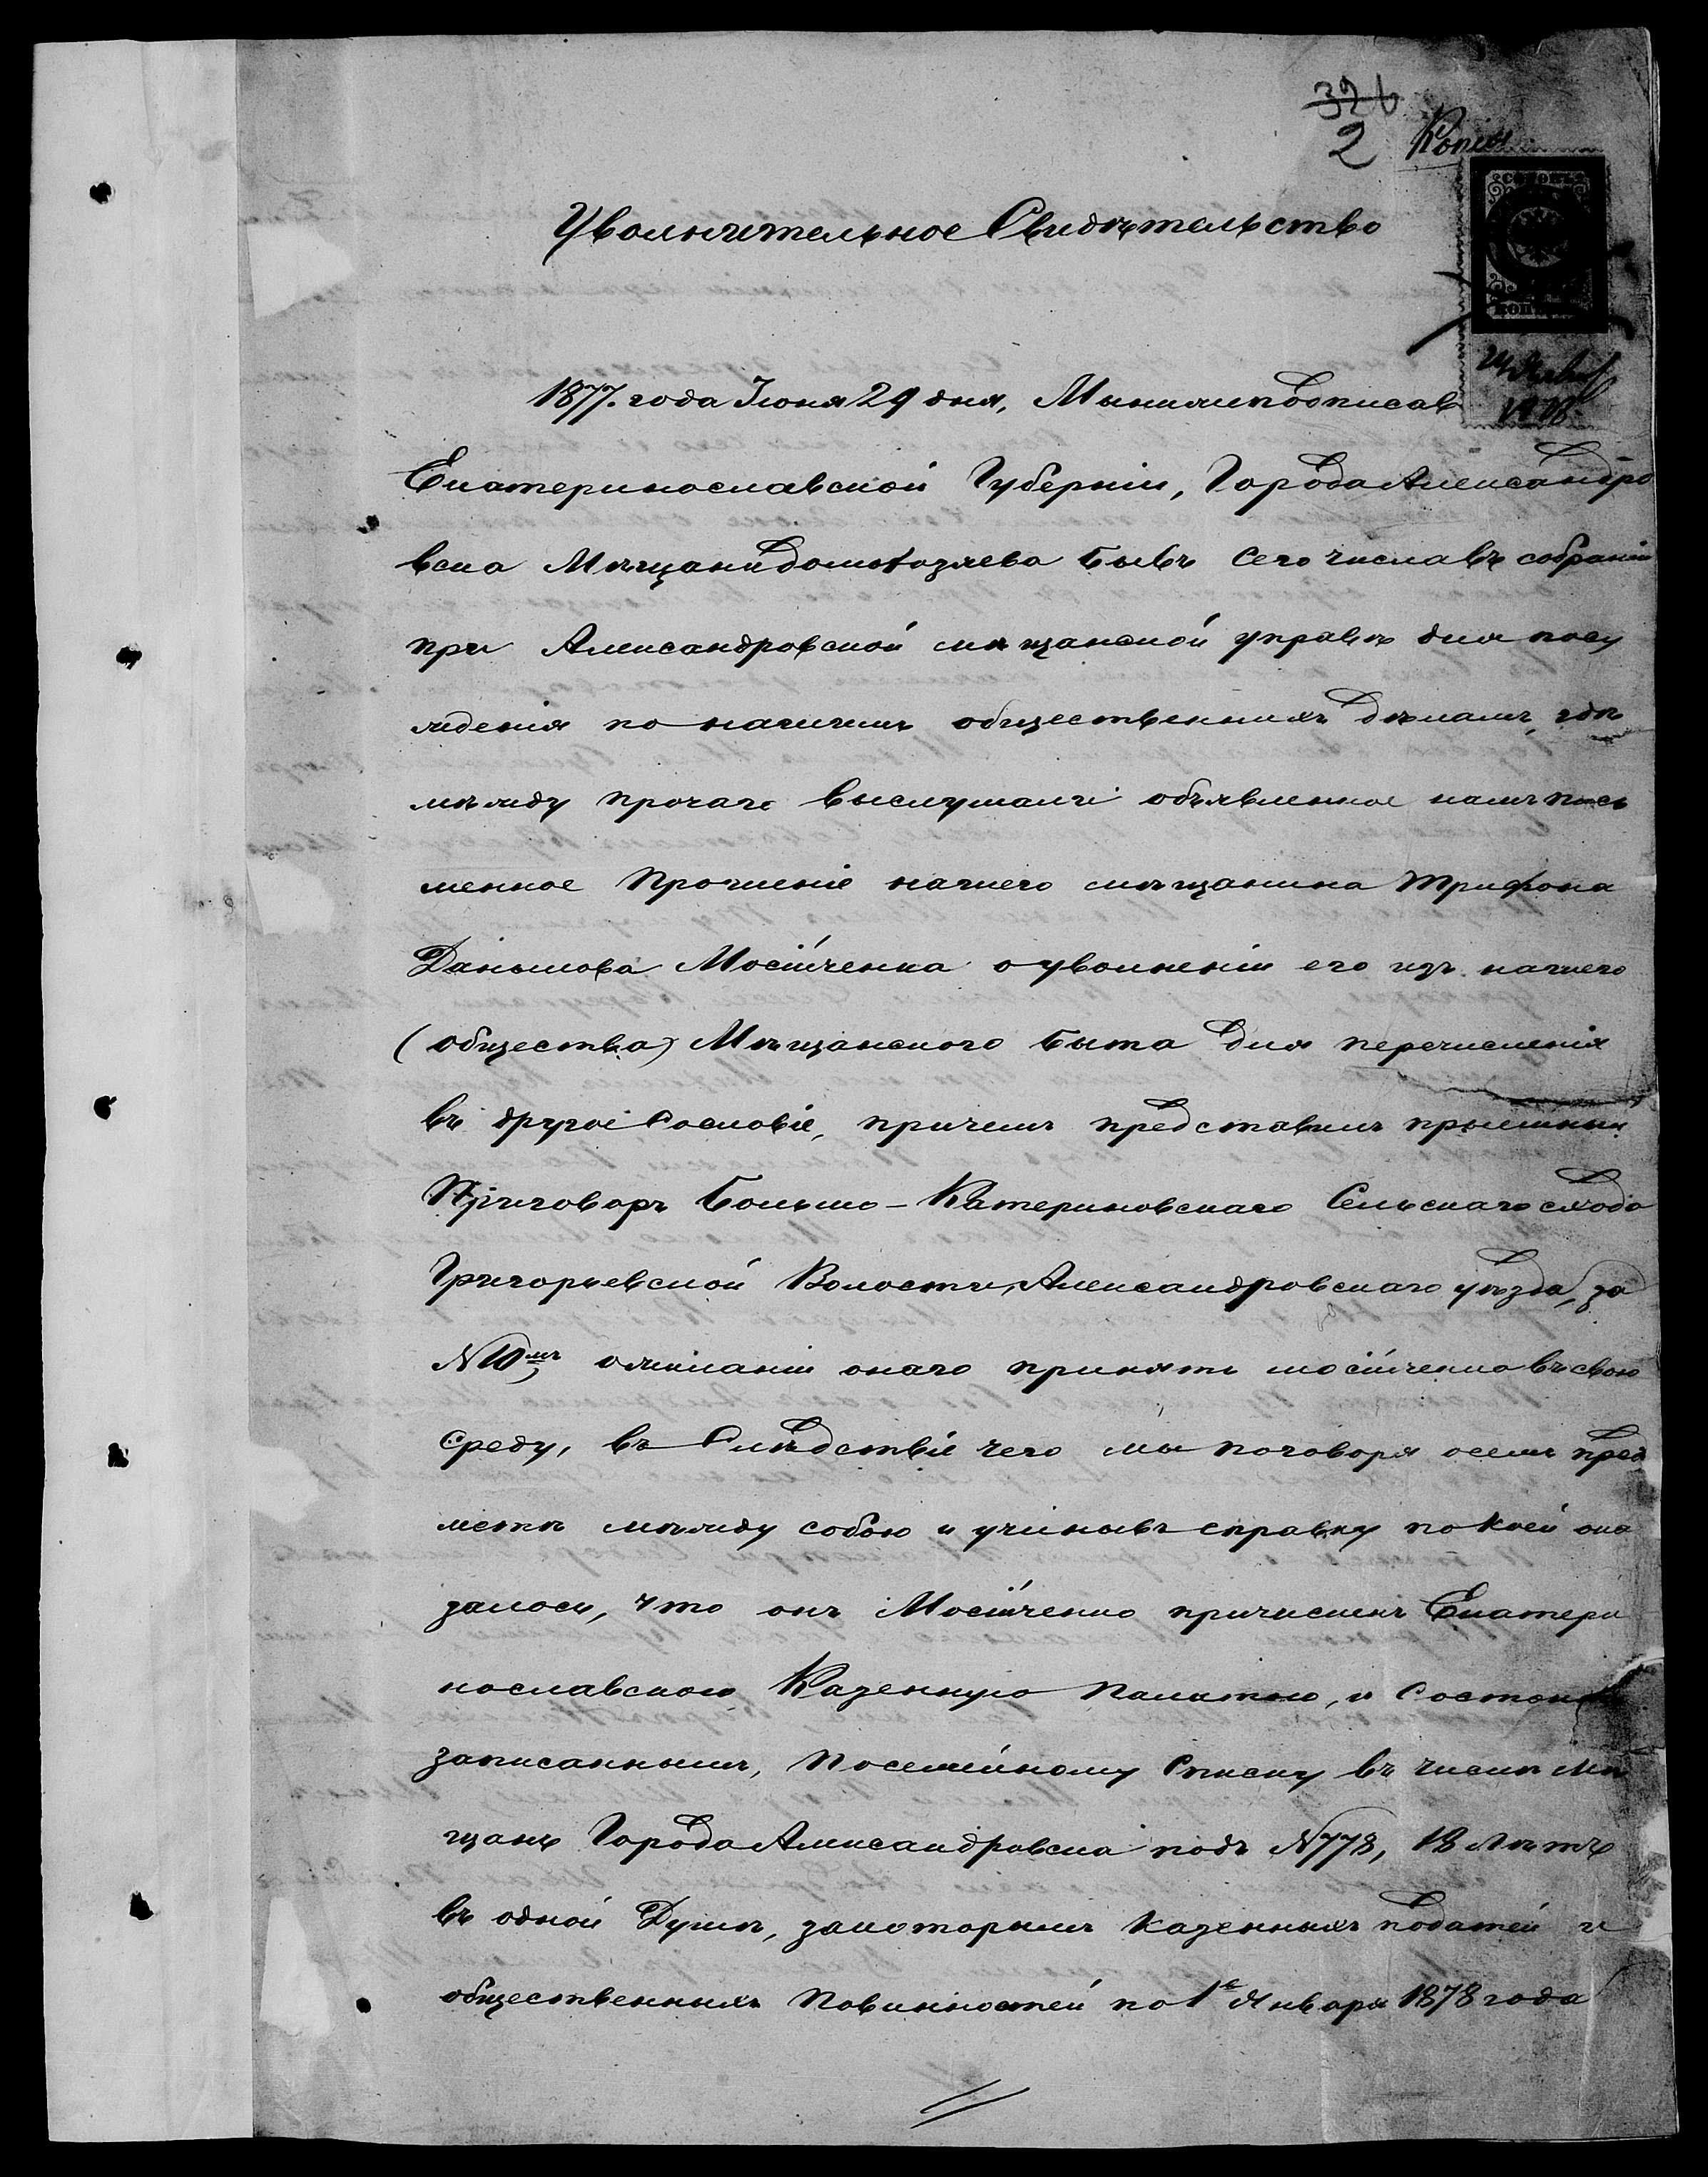 326
2 Копия
Увольнительное Свидѣтельство
1877. года Іюня 29 дня, Мынижеподписав
Екатеринославской Губерніи, Города Александро
вска Мѣщани домохозяева бывъ сего числа въ собраніи
при Александровской мѣщанской управѣ для посу
жденія по нашимъ общественнымъ дѣламъ, гдѣ
между прочаго выслушали объявленное намъ пись
менное Прошеніе нашего мѣщанина Трифона
Данылова Мосійченка о увольненіи его изъ нашего
(общества) Мѣщанского быта для перечисленія
въ другое Сословіе, причемъ представилъ
Приговоръ Больше-Катериновскаго Сельскаго схода
Григорьевской Волости, Александровскаго уѣзда, за
N 10мъ, ожиланіи онаго принять мосійченко въ свою
среду, въ Слѣдствіе чего мы поговоря осемъ пред
метѣ мѣжду собою и учинывъ справку по коей ока
залось, что онъ Мосійченко причисленъ Екатери
нославскою Казенную Палатою, и Состоитъ
записаннымъ, Посемейному Списку въ числѣ Мѣ
щанъ Города Александровска подъ N 778, 18 лѣтъ
въ одной Душѣ, закоторымъ казенныхъ податей и
общественныхъ Повинностей по 1е Января 1878 года